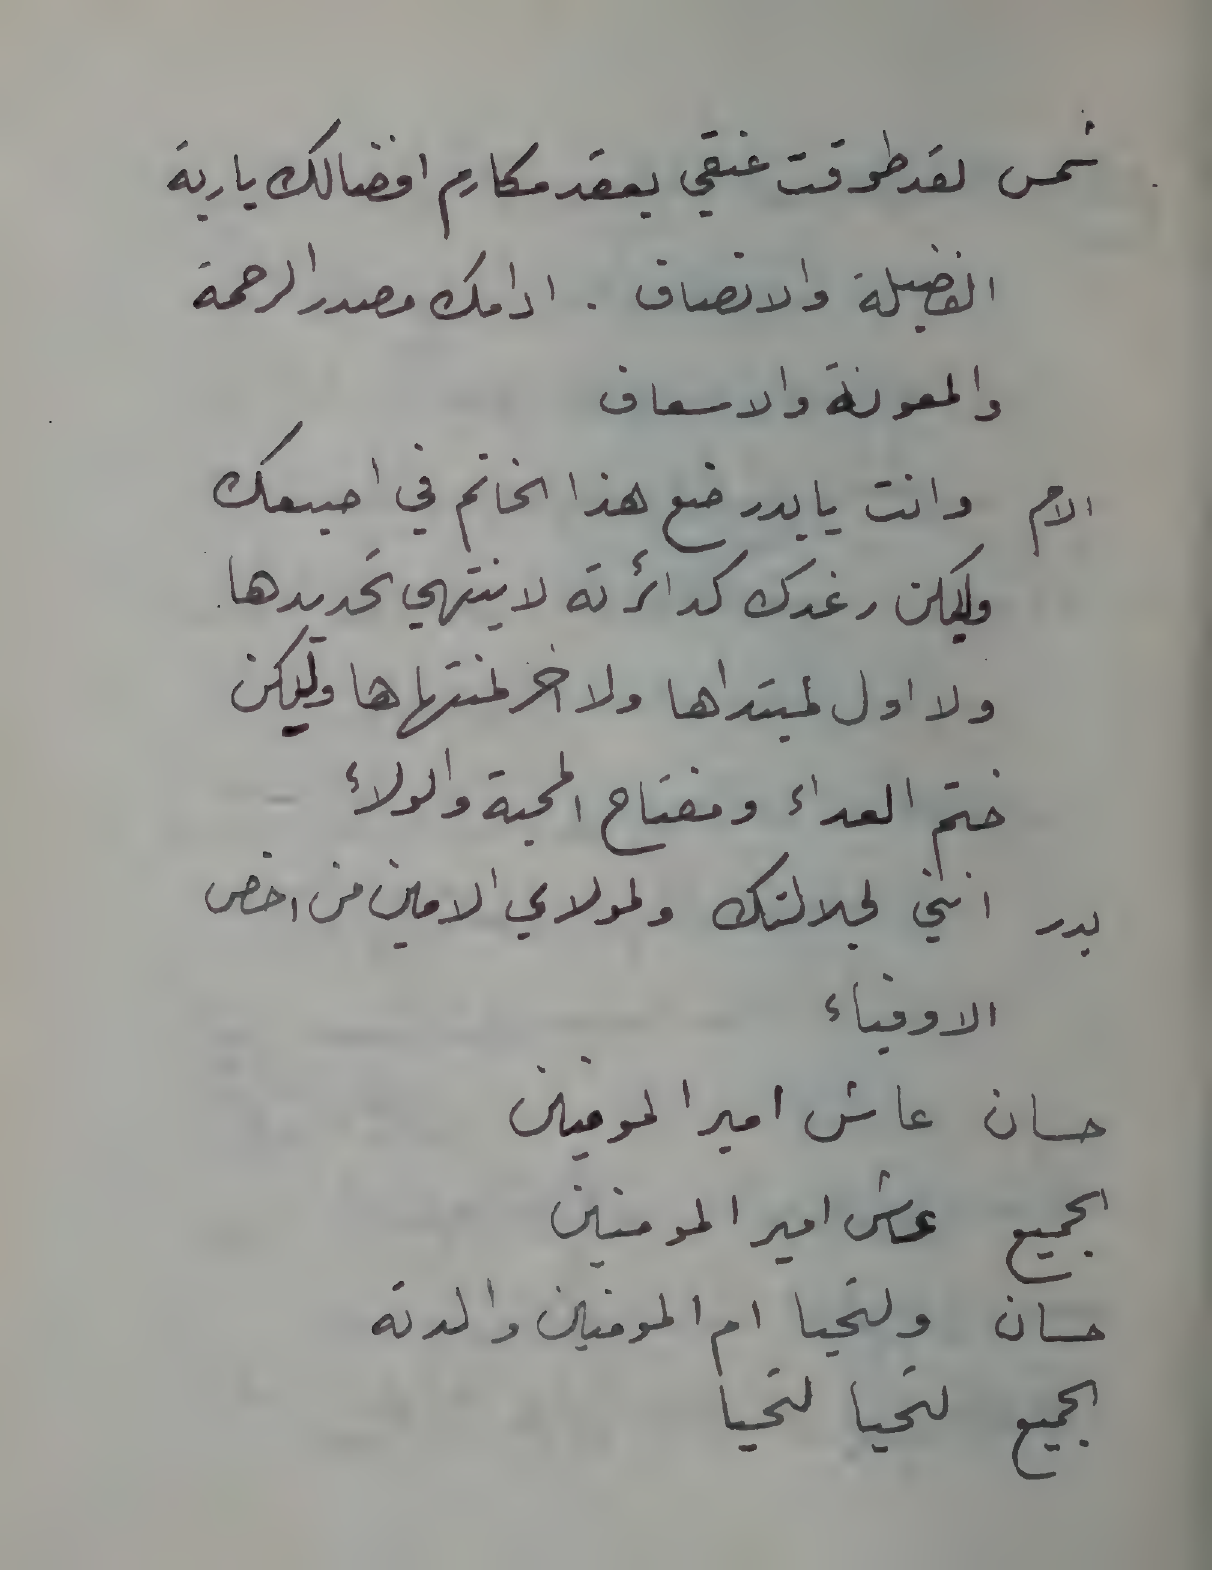 شمس لقد طوقت عنقي بعقد مكارم افضالك ياربة
الفضيلة والانصاف . ادامك مصدر الرحمة
والمعونة والاسعاف
الام وانت يابدر ضع هذا الخاتم في اصبعك
وليكن رغدك كدائرته لا ينتهي تحديدها
ولا اول لمبتداها ولا اخر لمنتهاها وليكن
ختم العداء ومفتاح المحبة والولاء
بدر انني لجلالتك ولمولاي الامين من اخص
الاوفياء
حسان عاش امير المومنين
الجميع عاش امير المومنين
حسان ولتحيا ام المومنين والدته
الجميع لتحيا لتحيا